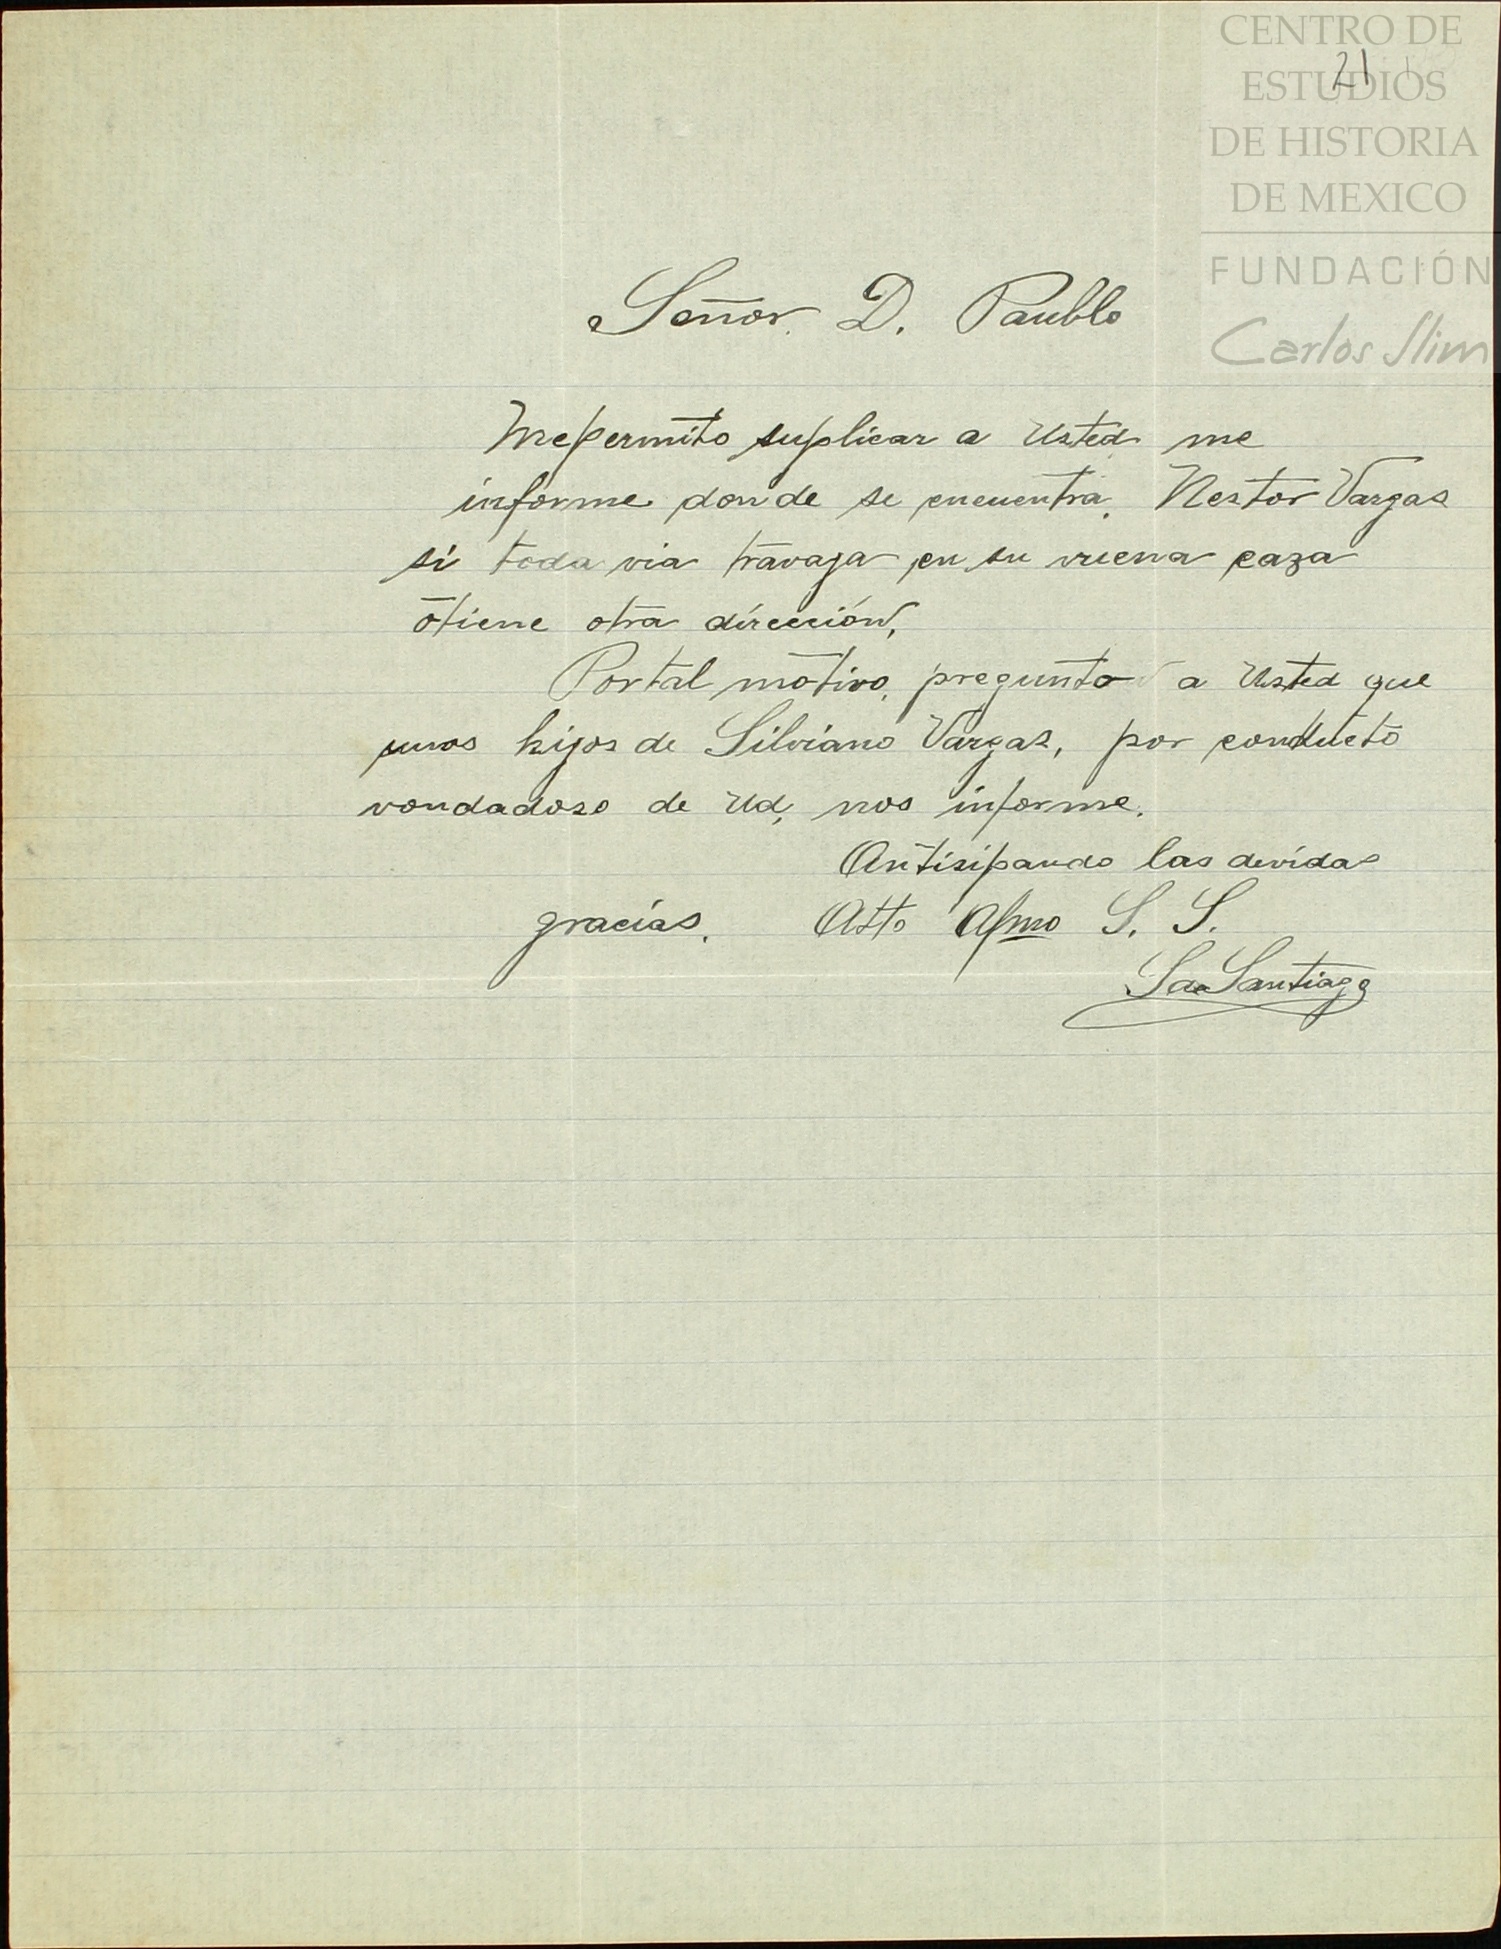 CENTRO DE
ESTUDIOS
DE HISTORIA
DE MEXICO
FUNDACIÓN
Carlos Slim
21
Señor. D. Paublo
Mepermito suplicar a Usted me
informe donde se encuentra, Nestor Vargas
si toda via travaja en su vuena caza
otiene otra dirección,
Portal motivo, pregunto a Usted que
unos hijos de Silviano Vargas, por conducto
vondadoso de Ud, nos informe.
Antisipando las devidas
gracias. Atto Afmo S. S.
Santiago